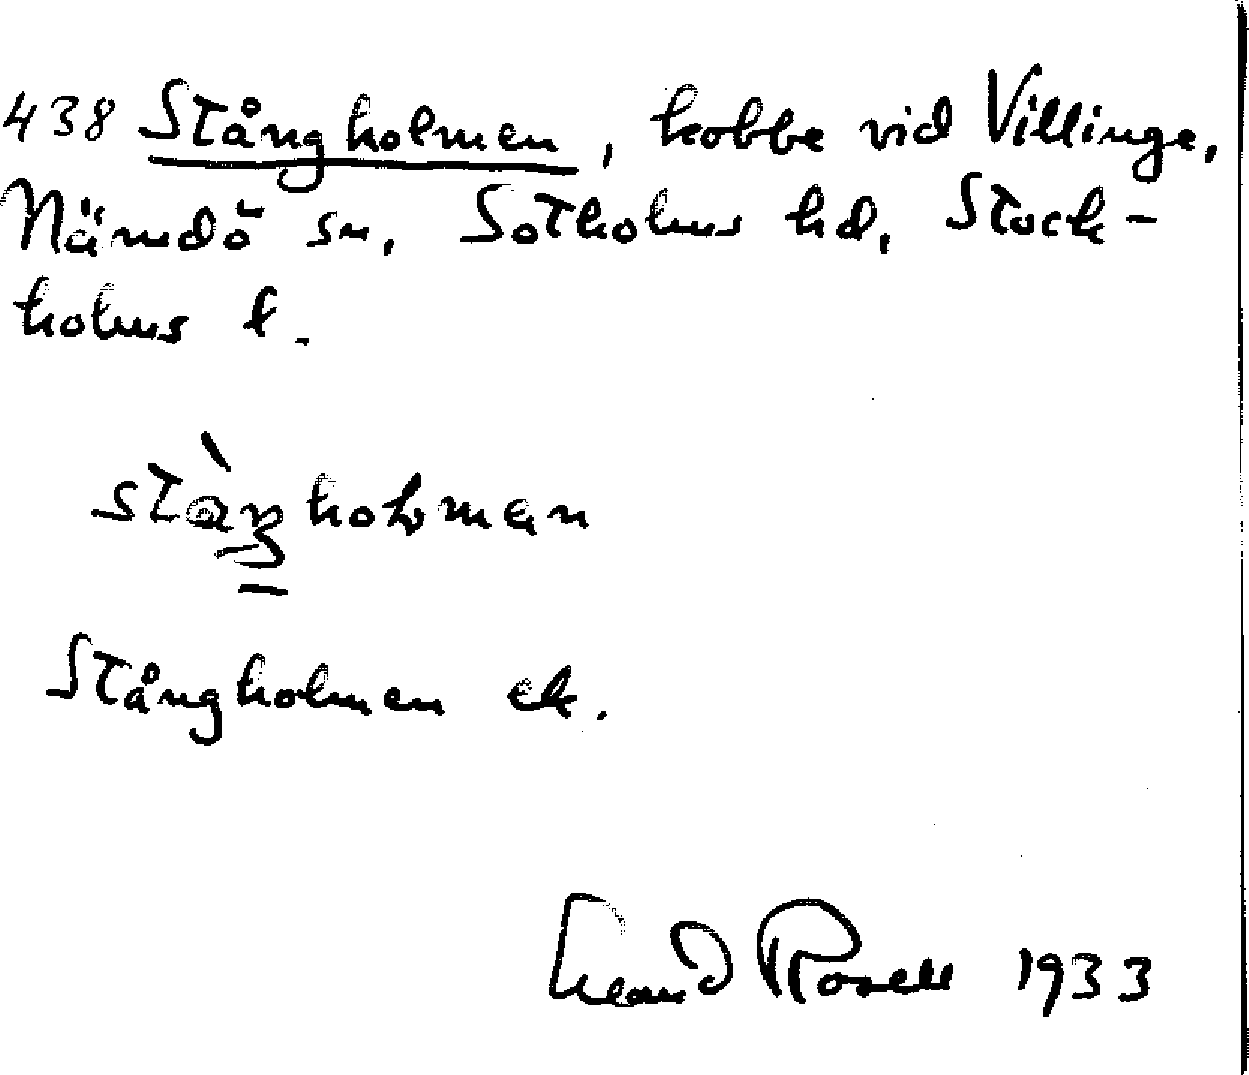 438 Stångholmen, kobbe vid Villinge,
Nämdö sn, Sotholms hd, Stock-
holms l.
stàŋholman
Stångholmen ek.
Rosell 1933